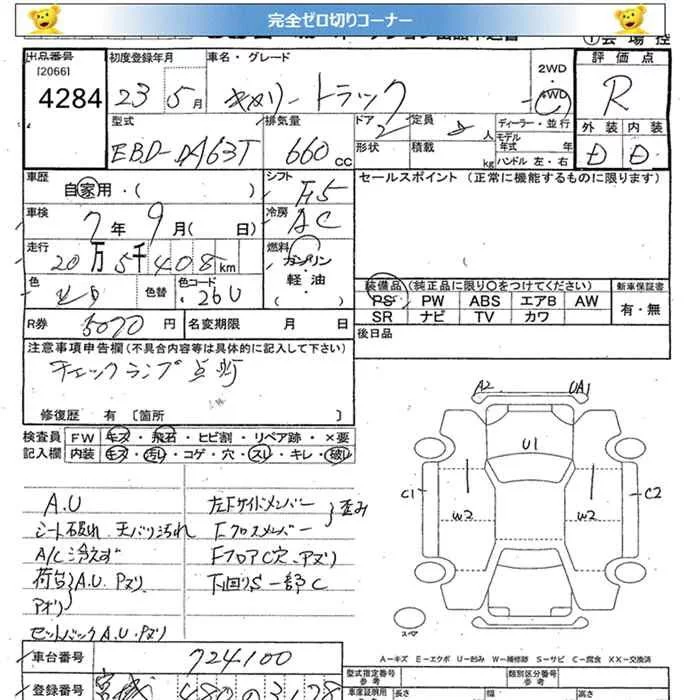 完全ゼロ切りコーナー
出品番号
[2066]
4284
初度登録年月
23 5月
車名・グレード
キャリートラック
2WD
4WD
評価点
R
型式
EBD-DA63T
排気量
660 cc
ドア 2
定員 人
ディーラー・並行
モデル年式 年
形状
積載 kg
ハンドル 左・右
外装 内装
D D
車歴
自家用・( )
シフト
F5
セールスポイント (正常に機能するものに限ります)
車検
7年 9月( 日)
冷房
AC
走行
20万5千408km
燃料
ガソリン
軽・油
( )
色
色替
色コード
26U
装備品(純正品に限り○をつけてください)
新車保証書
PS PW ABS エアB AW
有・無
SR ナビ TV カワ
R券 5070円
名変期限 月 日
後日品
注意事項申告欄(不具合内容等は具体的に記入して下さい)
チェックランプ点灯
修復歴 有〔箇所 〕
検査員 FW キズ・飛石・ヒビ割・リペア跡・×要
記入欄 内装 キズ・汚れ・コゲ・穴・スレ・キレ・破レ
A2 UA1
U1
C1 W2 W2 C2
A.U
シート破れ 天バリ汚れ
A/C冷えず
荷台A.U.Pヌリ
アオリ
セットバックA.U.Pヌリ
左Fサイドメンバー
Fクロスメンバー
歪み
FフロアC穴、アヌリ
下回りS 一部C
スペア
A-キズ E-エクボ U-凹み W-補修跡 S-サビ C-腐食 XX-交換済
車台番号 724100
登録番号 宮城 480
型式指定番号
参考
類別区分番号
参考
車庫証明用
長さ
幅
高さ